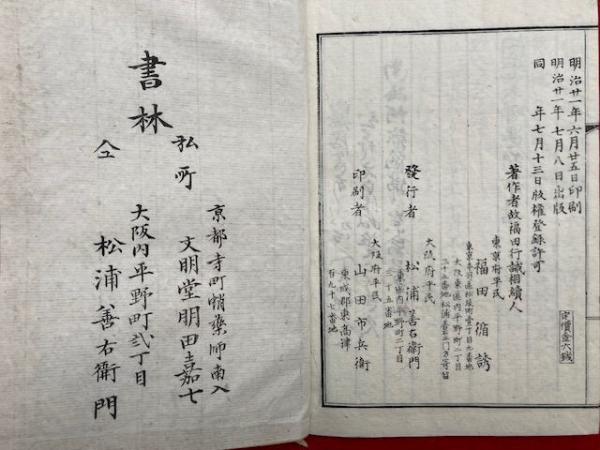 明治廿一年六月廿五日印刷
明治廿一年七月八日出版
同　年七月十三日版権登録許可
定價金六銭
著作者故福田行誡相續人
東京府平民
福田循誘
大阪府平民
發行者　松浦善右衛門
大阪府平民
印刷者　山田市兵衛
東成郡東高津
百九十七番地
書林
弘所
京都寺町蛸藥師南入
文明堂明田嘉七
大阪内平野町弐丁目
松浦善右衛門